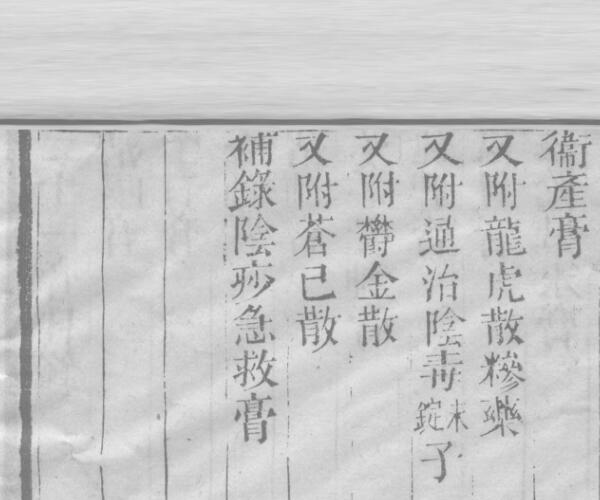 衞產膏
又附龍虎散糝藥
又附通治陰毒末錠子
又附欝金散
又附蒼已散
補錄陰痧急救膏